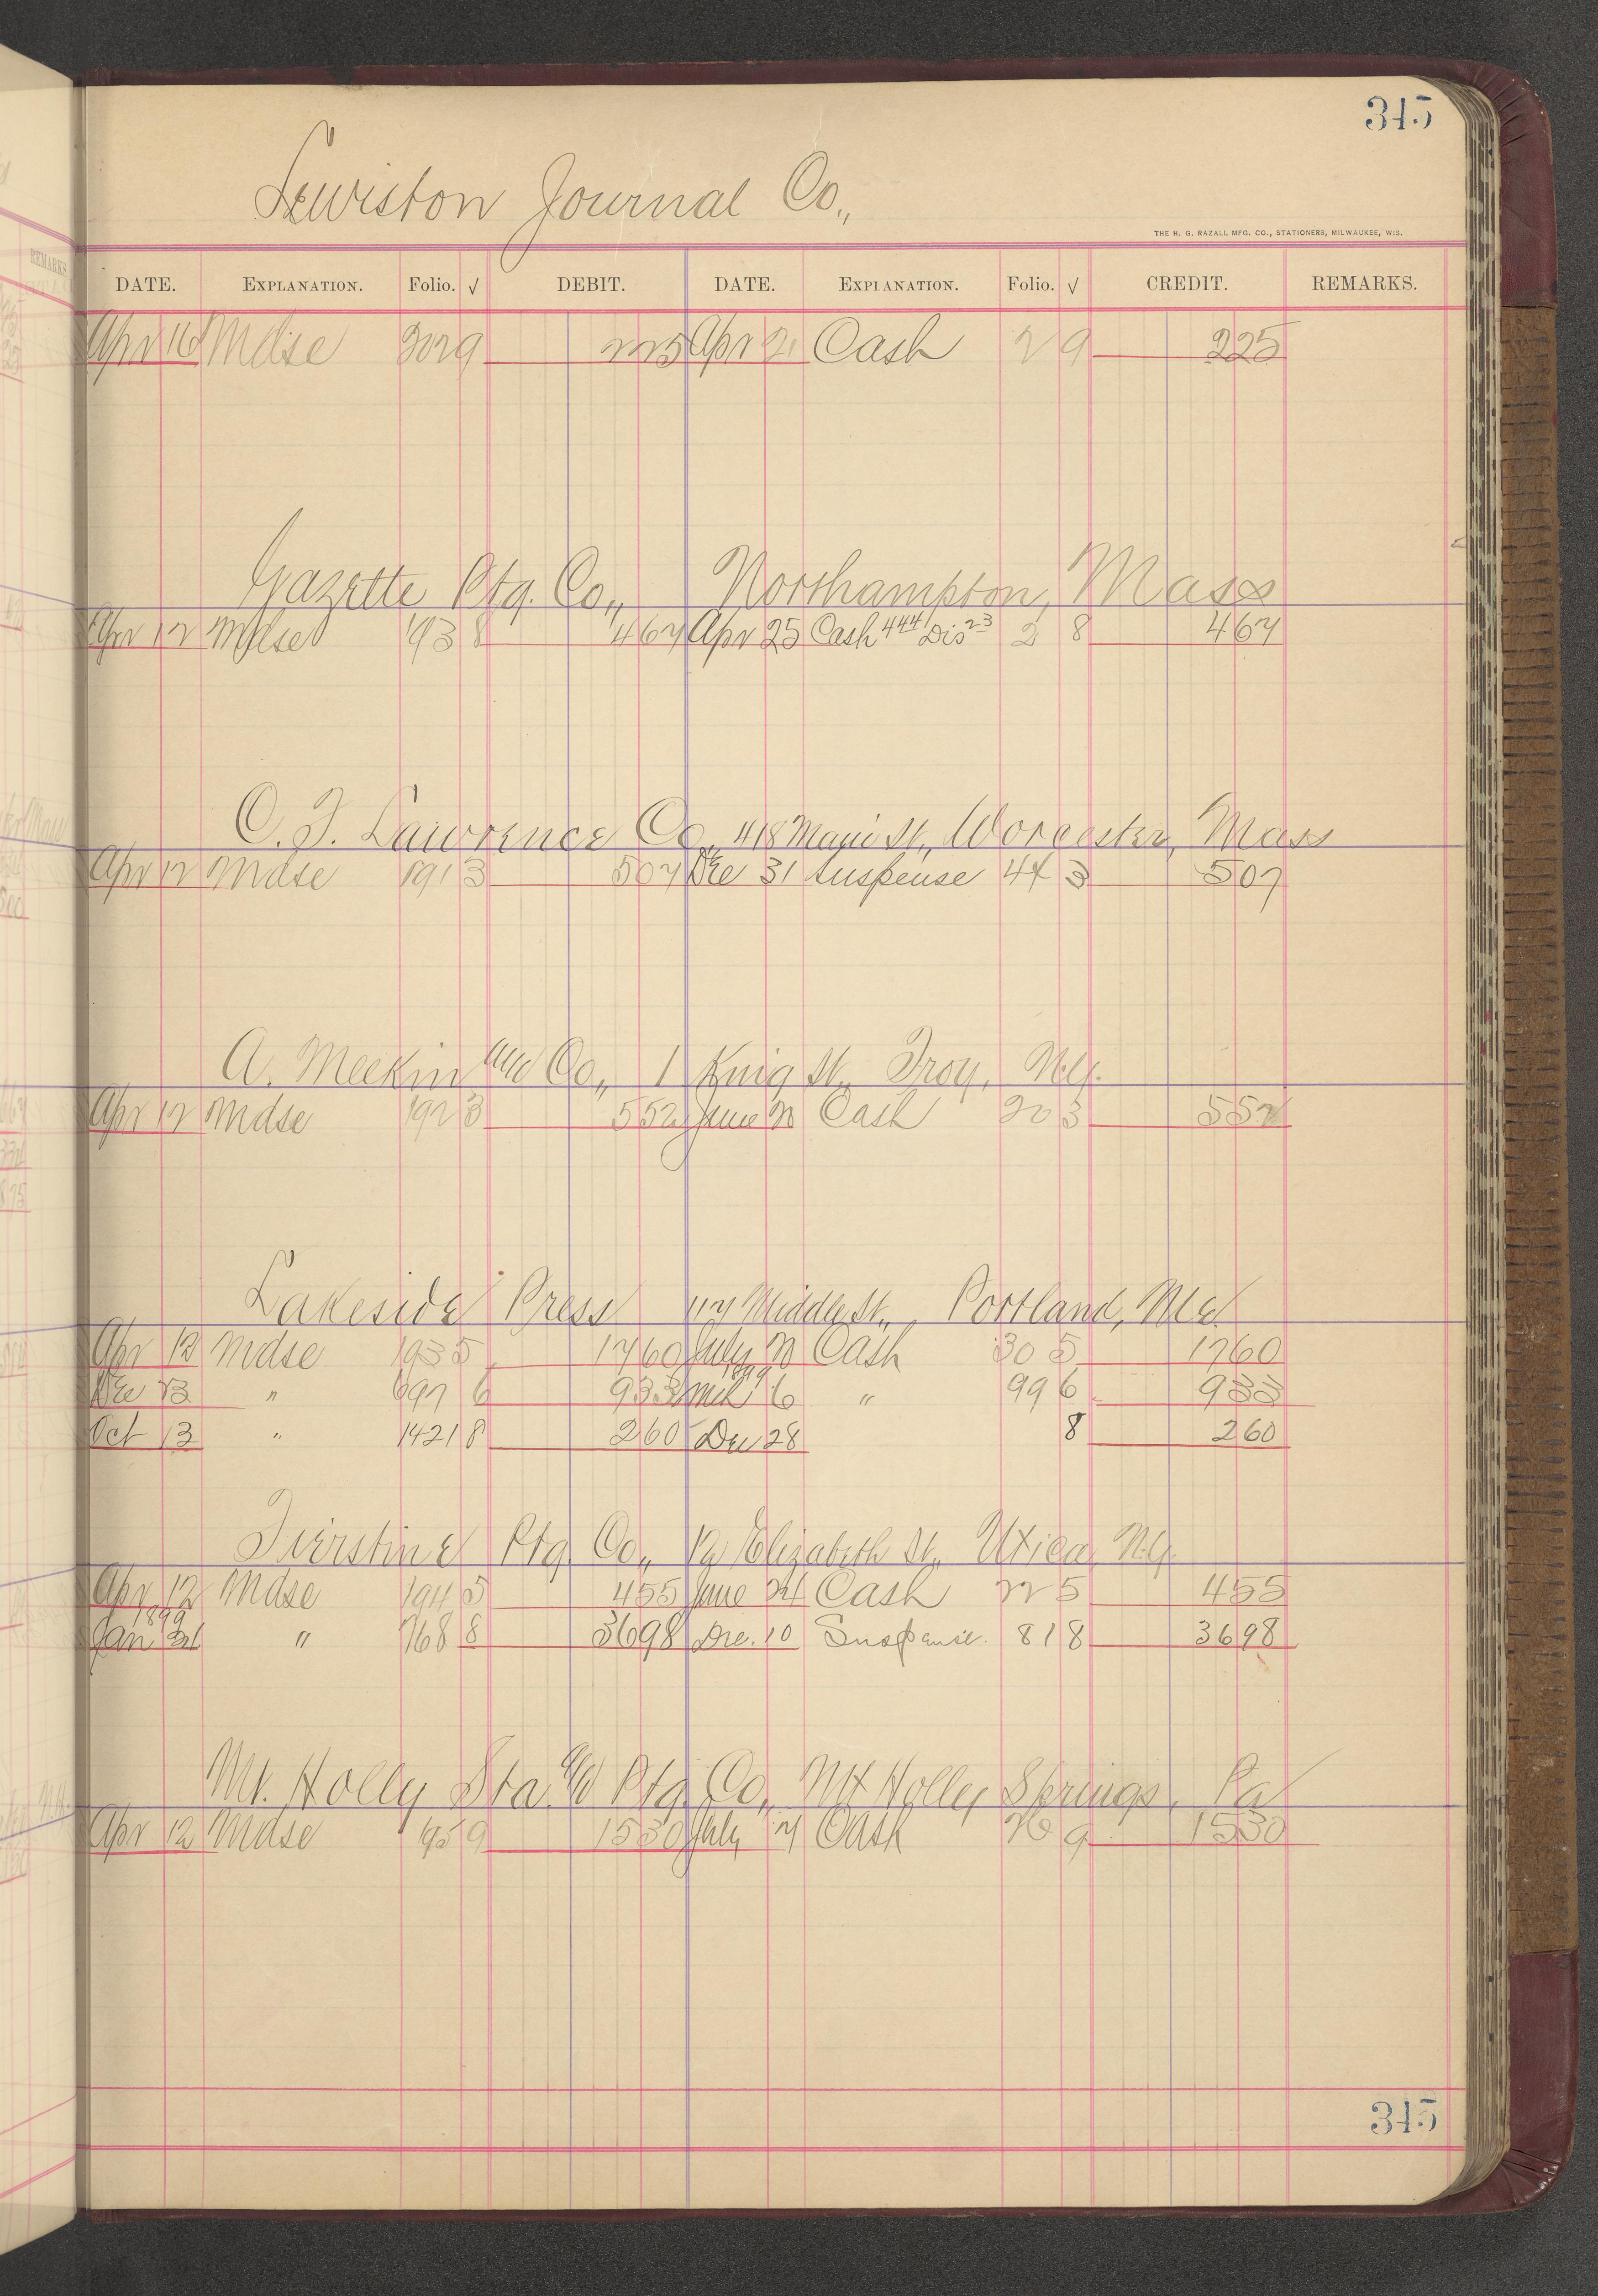 345
Lewiston Journal Co.,
THE H. G. RAZALL MFG. CO., STATIONERS, MILWAUKEE, WIS.
DATE. EXPLANATION. Folio. √ DEBIT. DATE. EXPLANATION. Folio. √ CREDIT. REMARKS.
Apr 16 Mdse 202 9 225 Apr 21 Cash 2 9 225
Gazette Ptg. Co., Northampton, Mass
Apr 12 Mdse 193 8 467 Apr 25 Cash 444 Dis 23 2 8 467
C. F. Lawrence Co., 418 Main St., Worcester, Mass
Apr 12 Mdse 191 3 507 Dec 31 Suspense 44 3 507
A. Meekin and Co., 1 King St., Troy, N.Y.
Apr 12 Mdse 192 3 552 June 2 Cash 20 3 552
Lakeside Press 117 Middle St., Portland, Me.
Apr 12 Mdse 193 5 1760 July Cash 30 5 1760
Dec 13 " 697 6 933 Mch 6 " 99 6 933
Oct 13 " 1421 8 260 Dec 28 8 260
Tierstine Ptg. Co., Elizabeth St., Utica, N.Y.
Apr 12 Mdse 194 5 455 June 24 Cash 22 5 455
1899
Jan 768 8 3698 Dec. 10 Suspense. 81 8 3698
Mt. Holly Sta. & Ptg. Co., Mt Holly Springs, Pa
Apr 12 Mdse 195 9 1530 July Cash 9 1530
345